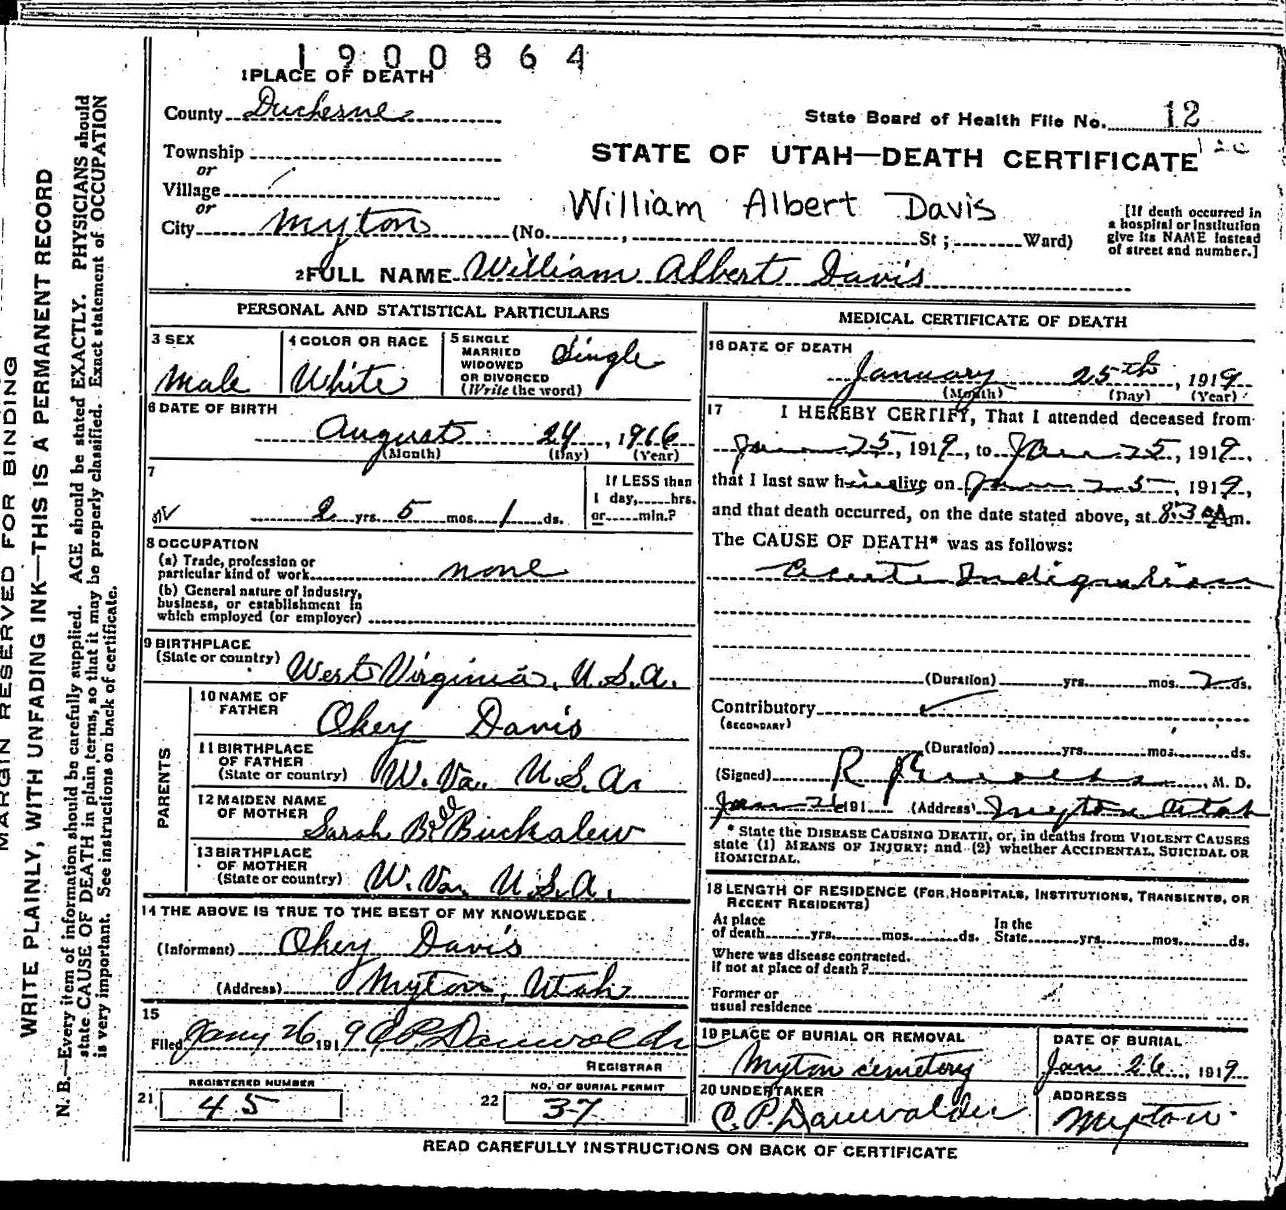 1900864
1 PLACE OF DEATH
County Duchesne
State Board of Health File No. 12
Township
or
Village
or
City Myton
STATE OF UTAH—DEATH CERTIFICATE
William Albert Davis
(No. , St ; Ward)
[If death occurred in
a hospital or institution
give its NAME instead
of street and number.]
2 FULL NAME William Albert Davis
PERSONAL AND STATISTICAL PARTICULARS
3 SEX
Male
4 COLOR OR RACE
White
5 SINGLE
MARRIED
WIDOWED
OR DIVORCED
(Write the word)
Single
6 DATE OF BIRTH
August 24, 1916
(Month) (Day) (Year)
7
2 yrs. 5 mos. 1 ds.
If LESS than
1 day, hrs.
or min.?
8 OCCUPATION
(a) Trade, profession or
particular kind of work none
(b) General nature of Industry,
business, or establishment in
which employed (or employer)
9 BIRTHPLACE
(State or country) West Virginia, U.S.A.
PARENTS
10 NAME OF
FATHER
Okey Davis
11 BIRTHPLACE
OF FATHER
(State or country) W. Va. U.S.A.
12 MAIDEN NAME
OF MOTHER
Sarah Bell Buckalew
13 BIRTHPLACE
OF MOTHER
(State or country) W. Va. U.S.A.
14 THE ABOVE IS TRUE TO THE BEST OF MY KNOWLEDGE
(Informant) Okey Davis
(Address) Myton, Utah
15
Filed Jany 26 1919 C.P. Dauwalder
REGISTRAR
21 REGISTERED NUMBER
45
22 NO. OF BURIAL PERMIT
37
MEDICAL CERTIFICATE OF DEATH
16 DATE OF DEATH
January 25th, 1919
(Month) (Day) (Year)
17 I HEREBY CERTIFY, That I attended deceased from
Jan 25, 1919, to Jan 25, 1919,
that I last saw him alive on Jan 25, 1919,
and that death occurred, on the date stated above, at 8:30 Am.
The CAUSE OF DEATH* was as follows:
Acute Indigestion
(Duration) yrs. mos. 2 ds.
Contributory
(SECONDARY)
(Duration) yrs. mos. ds.
(Signed) R M. D.
Jan 26 191 (Address) Myton Utah
* State the DISEASE CAUSING DEATH, or, in deaths from VIOLENT CAUSES
state (1) MEANS OF INJURY; and (2) whether ACCIDENTAL, SUICIDAL OR
HOMICIDAL.
18 LENGTH OF RESIDENCE (FOR HOSPITALS, INSTITUTIONS, TRANSIENTS, OR
RECENT RESIDENTS)
At place
of death yrs. mos. ds.
In the
State yrs. mos. ds.
Where was disease contracted.
if not at place of death?
Former or
usual residence
19 PLACE OF BURIAL OR REMOVAL
Myton cemetery
DATE OF BURIAL
Jan 26, 1919
20 UNDERTAKER
C.P. Dauwalder
ADDRESS
Myton
READ CAREFULLY INSTRUCTIONS ON BACK OF CERTIFICATE
MARGIN RESERVED FOR BINDING
WRITE PLAINLY, WITH UNFADING INK—THIS IS A PERMANENT RECORD
N. B.—Every item of information should be carefully supplied. AGE should be stated EXACTLY. PHYSICIANS should
state CAUSE OF DEATH in plain terms, so that it may be properly classified. Exact statement of OCCUPATION
is very important. See instructions on back of certificate.